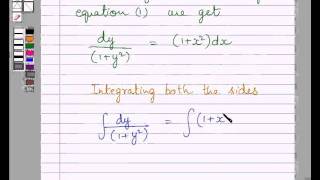 equation (1) are get
dy/(1+y²) = (1+x²)dx
Integrating both the sides
∫ dy/(1+y²) = ∫(1+x